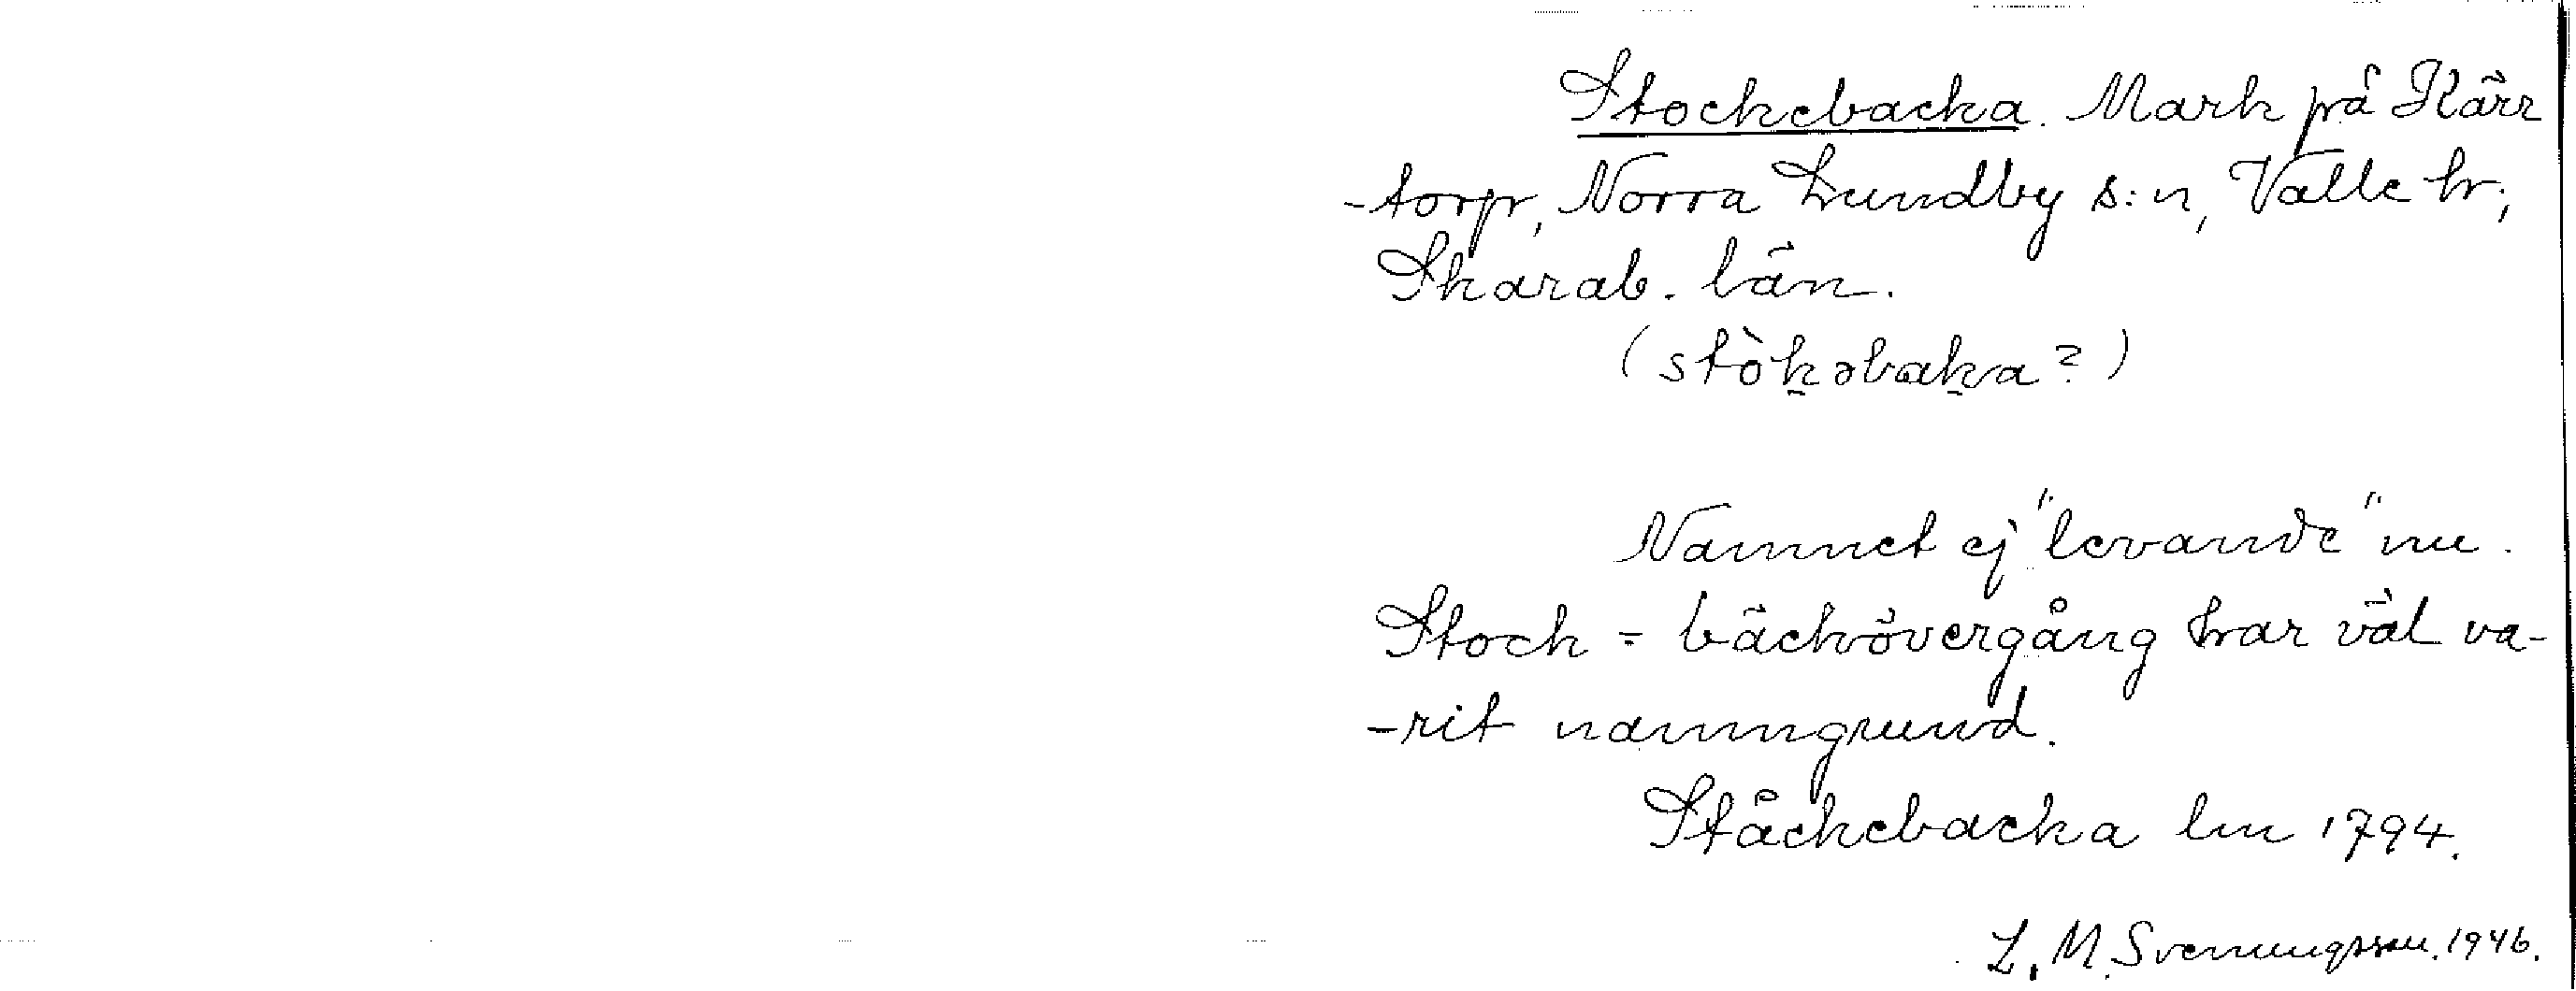 Stockebacka. Mark på Kärr
-torp, Norra Lundby s:n, Valle hr,
Skarab. län.
(stòk̠əbak̠a?)
Namnet ej "levande" nu.
Stock = bäckövergång har väl va-
-rit namngrund.
Ståckebacka lm 1794.
L. M. Svenungsson. 1946.